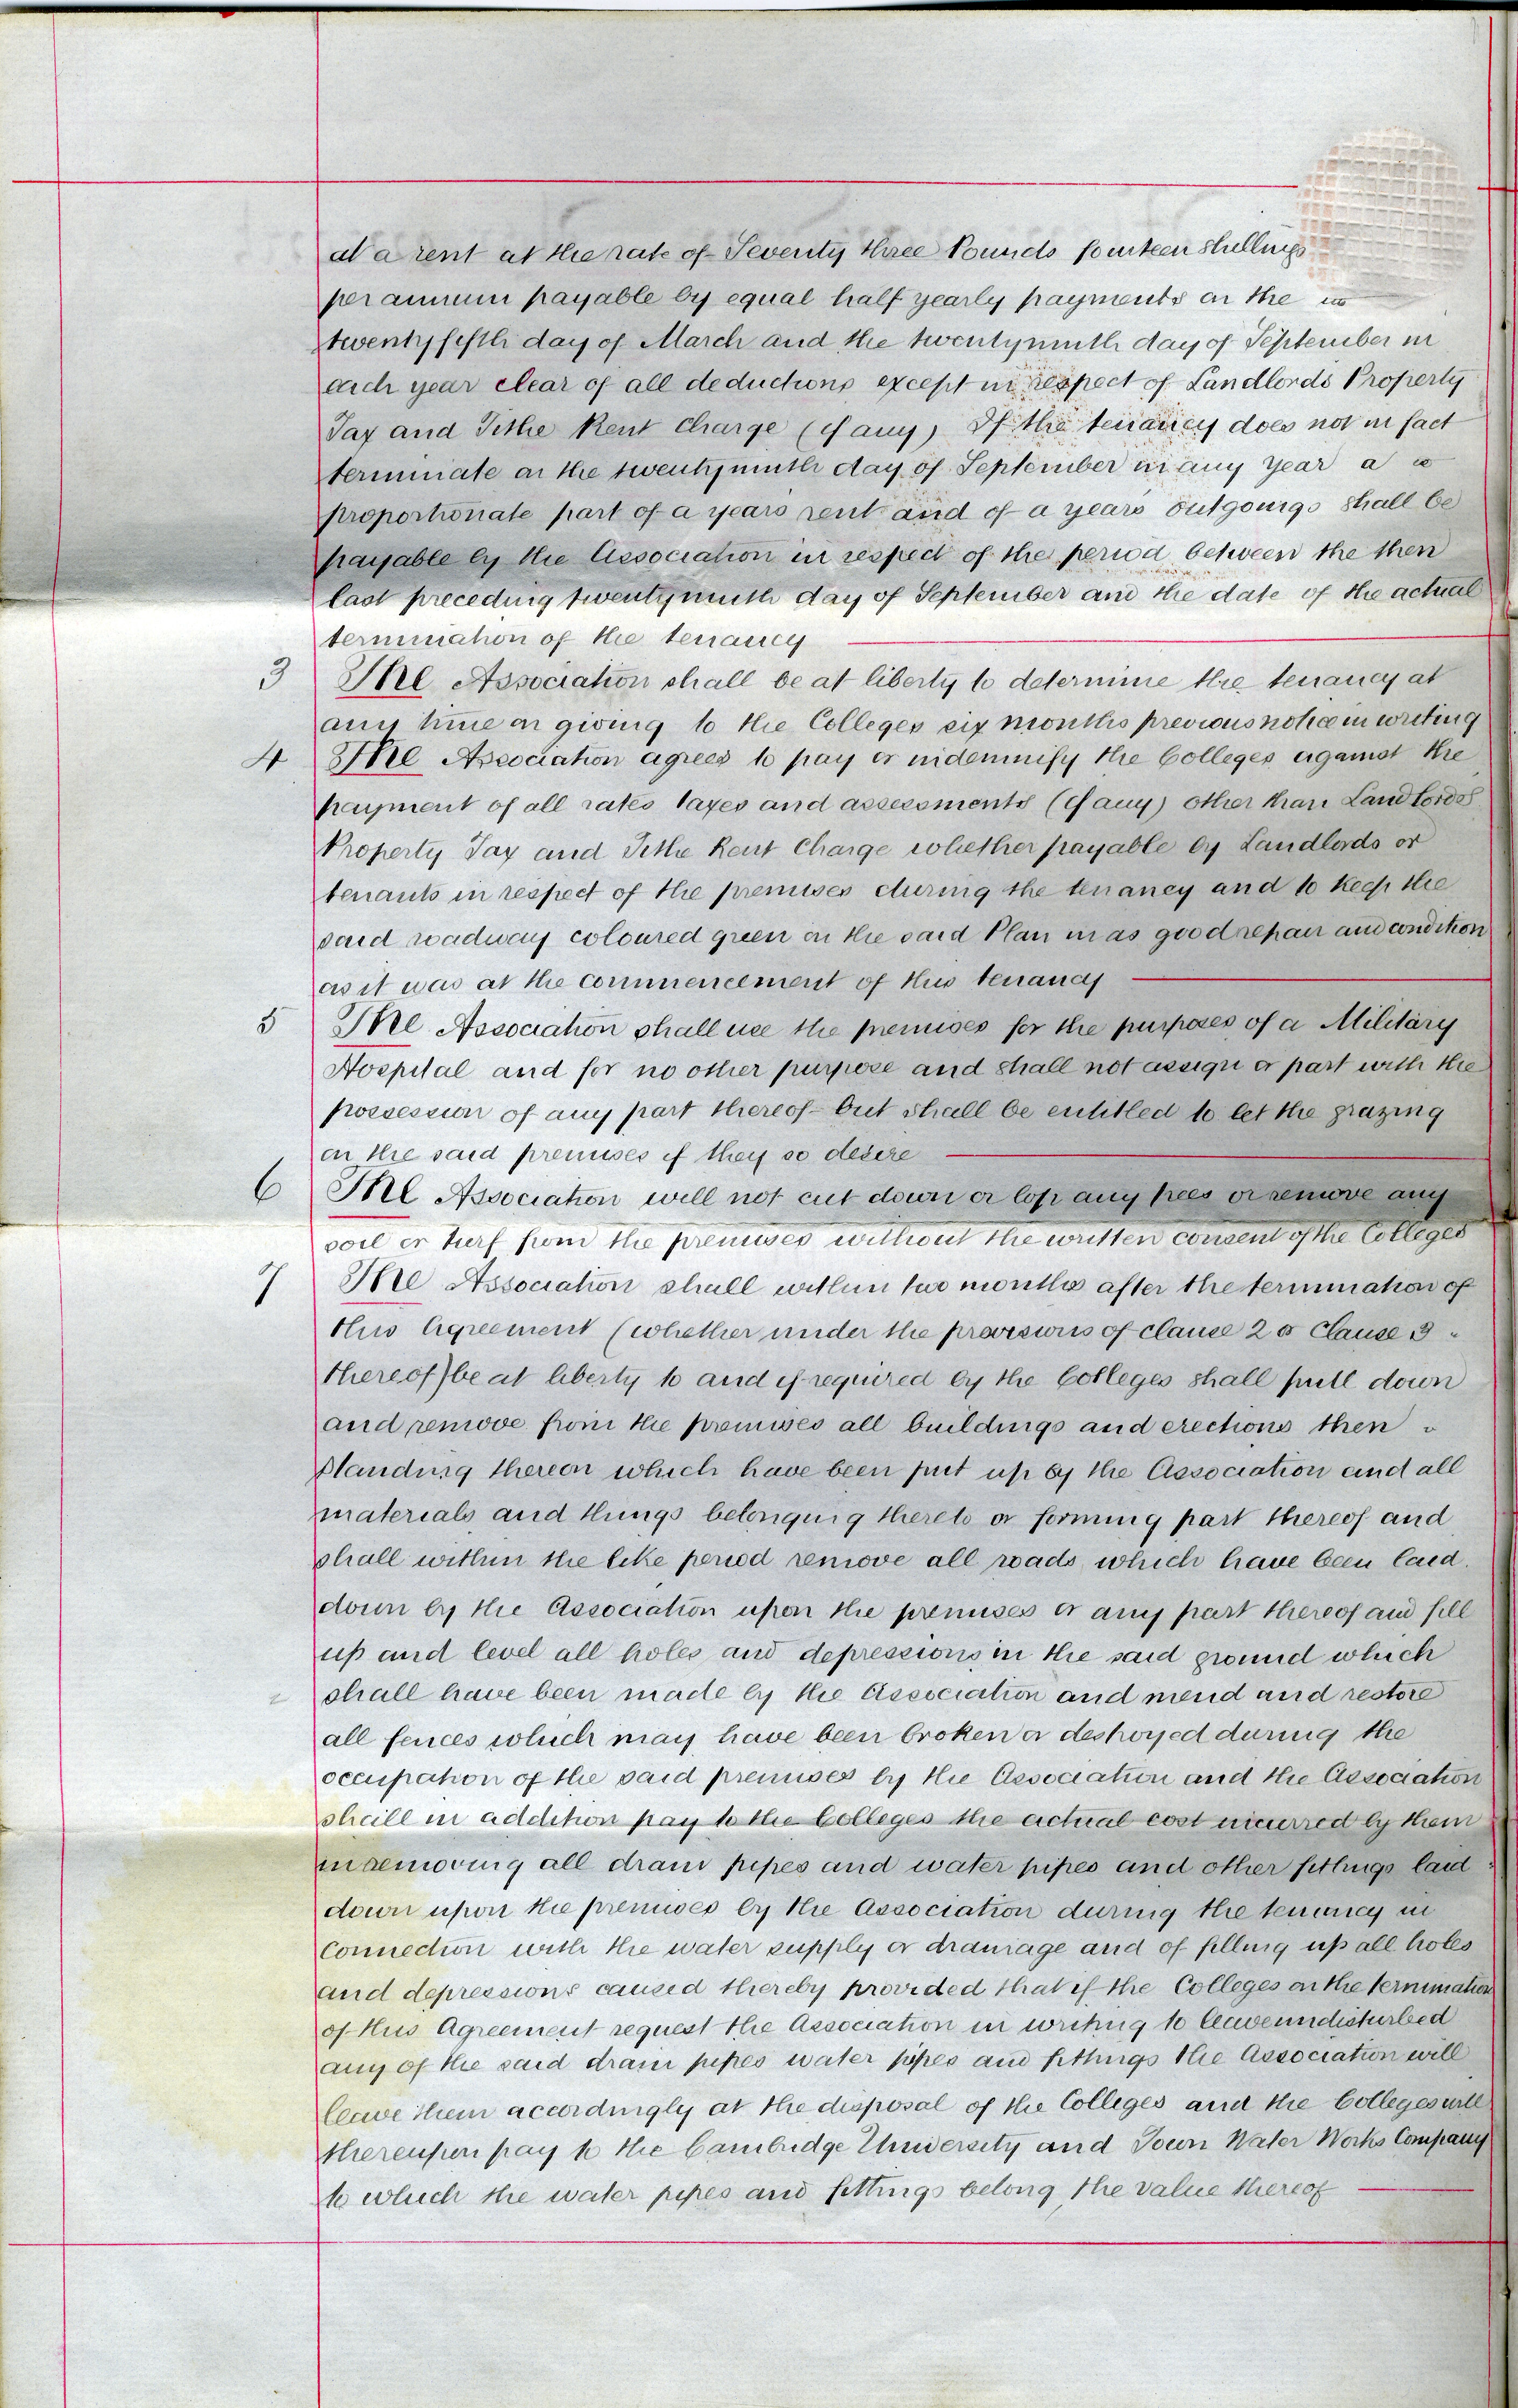 at a rent at the rate of Seventy three Pounds fourteen shillings
per annum payable by equal half yearly payments on the
twentyfifth day of March and the twentyninth day of September in
each year clear of all deductions except in respect of Landlords Property
Tax and Tithe Rent Charge (if any) If the tenancy does not in fact
terminate on the twentyninth day of September in any year a
proportionate part of a years rent and of a years outgoings shall be
payable by the Association in respect of the period between the then
last preceding twentyninth day of September and the date of the actual
termination of the tenancy
3 The Association shall be at liberty to determine the tenancy at
any time on giving to the Colleges six months previous notice in writing
4 The Association agrees to pay or indemnify the Colleges against the
payment of all rates taxes and assessments (if any) other than Landlords
Property Tax and Tithe Rent Charge whether payable by Landlords or
tenants in respect of the premises during the tenancy and to keep the
said roadway coloured green on the said Plan in as good repair and condition
as it was at the commencement of this tenancy
5 The Association shall use the premises for the purposes of a Military
Hospital and for no other purpose and shall not assign or part with the
possession of any part thereof but shall be entitled to let the grazing
on the said premises if they so desire
6 The Association will not cut down or lop any trees or remove any
soil or turf from the premises without the written consent of the Colleges
7 The Association shall within two months after the termination of
this Agreement (whether under the provisions of clause 2 or Clause 3
thereof) be at liberty to and if required by the Colleges shall pull down
and remove from the premises all buildings and erections then
standing thereon which have been put up by the Association and all
materials and things belonging thereto or forming part thereof and
shall within the like period remove all roads which have been laid
down by the Association upon the premises or any part thereof and fill
up and level all holes and depressions in the said ground which
shall have been made by the Association and mend and restore
all fences which may have been broken or destroyed during the
occupation of the said premises by the Association and the Association
shall in addition pay to the Colleges the actual cost incurred by them
in removing all drain pipes and water pipes and other fittings laid
down upon the premises by the Association during the tenancy in
connection with the water supply or drainage and of filling up all holes
and depressions caused thereby provided that if the Colleges on the termination
of this Agreement request the Association in writing to leave undisturbed
any of the said drain pipes water pipes and fittings the Association will
leave them accordingly at the disposal of the Colleges and the Colleges will
thereupon pay to the Cambridge University and Town Water Works Company
to which the water pipes and fittings belong the value thereof